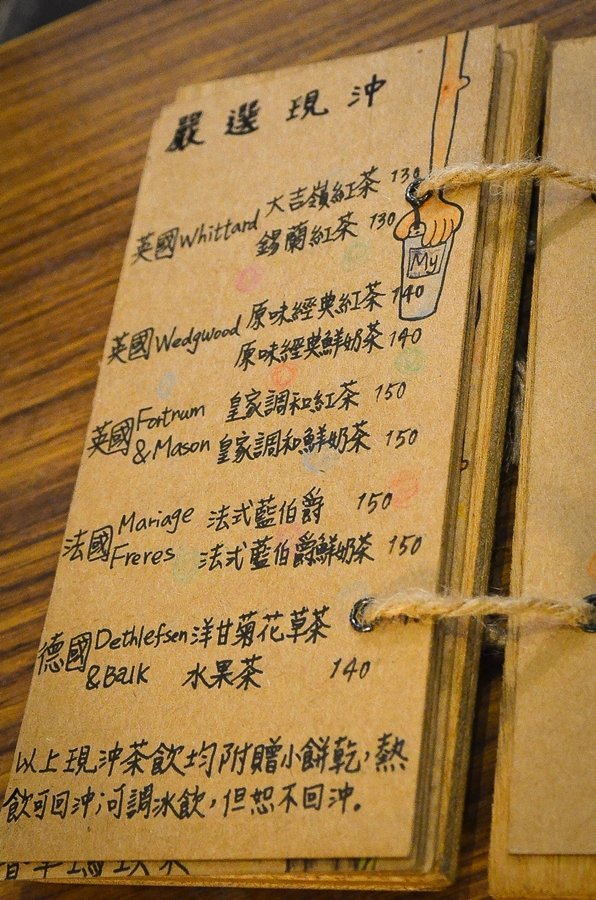 嚴選現沖
英國Whittard 大吉嶺紅茶 130
錫蘭紅茶 130
My
英國Wedgwood 原味經典紅茶 140
原味經典鮮奶茶 140
英國Fortnum 皇家調和紅茶 150
&Mason 皇家調和鮮奶茶 150
法國Mariage 法式藍伯爵 150
Freres 法式藍伯爵鮮奶茶 150
德國Dethlefsen 洋甘菊花草茶
&Balk 水果茶 140
以上現沖茶飲均附贈小餅乾,熱
飲可回沖;可調冰飲,但恕不回沖。